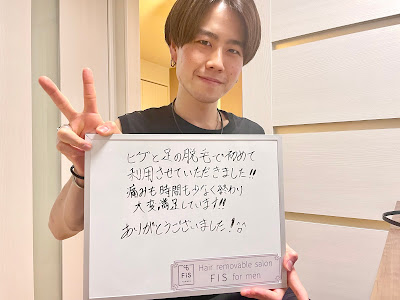 ヒゲと足の脱毛で初めて
利用させていただきました!!
痛みも時間も少なく終わり
大変満足しています!!
ありがとうございました!
FIS
Hair removable salon
FIS for men